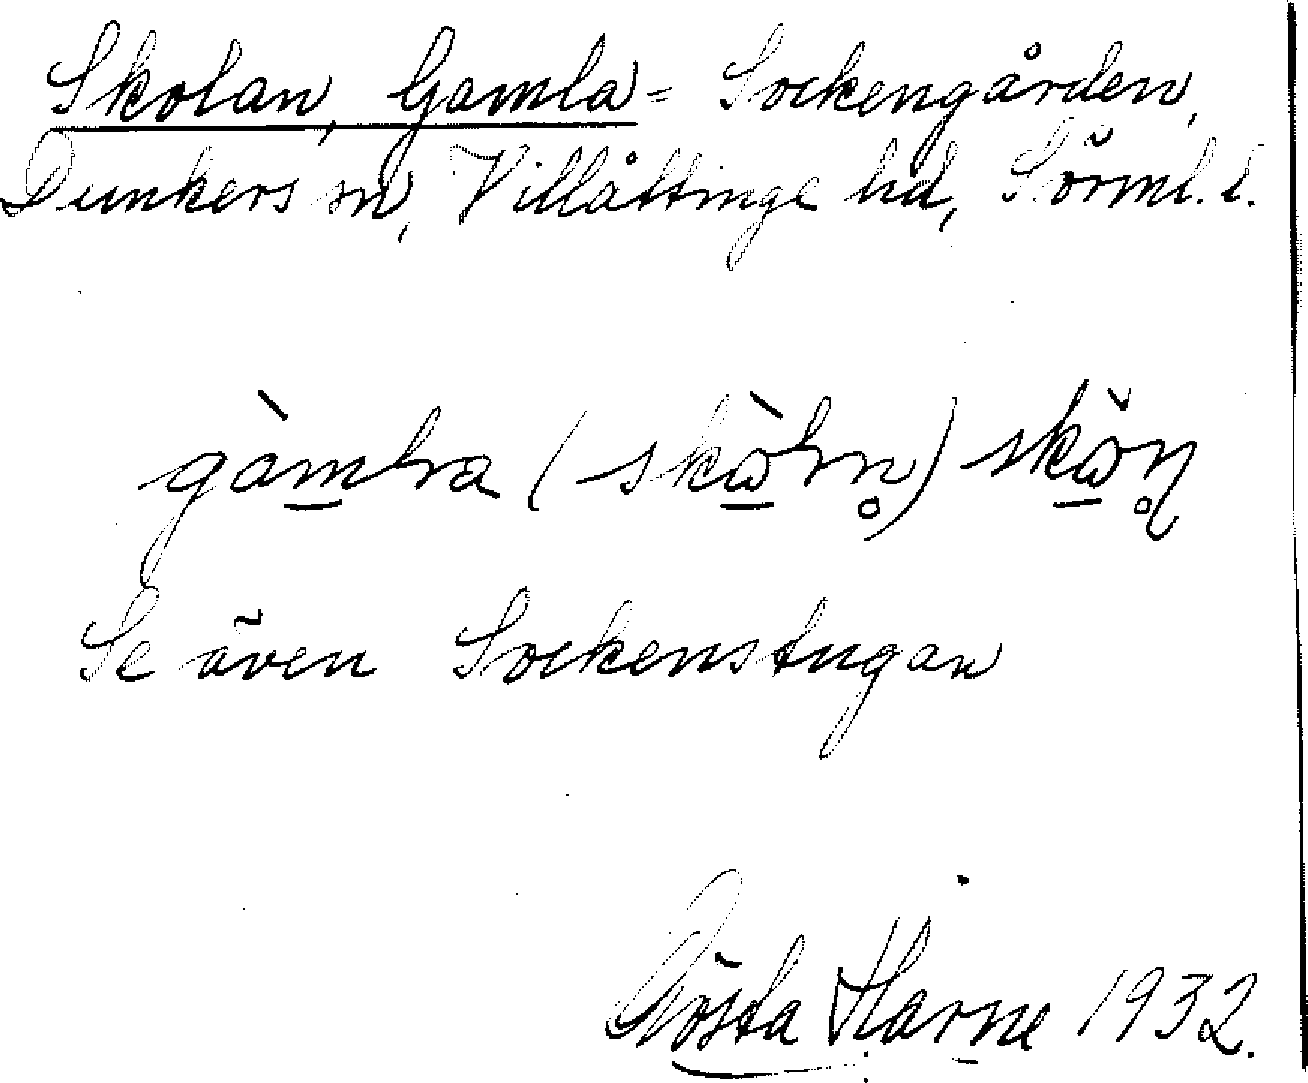 Skolan, Gamla = Sockengården,
Dunkers sn, Villåttinge hd, Sörml. l.
Se även Sockenstugan
Gösta Härne 1932.